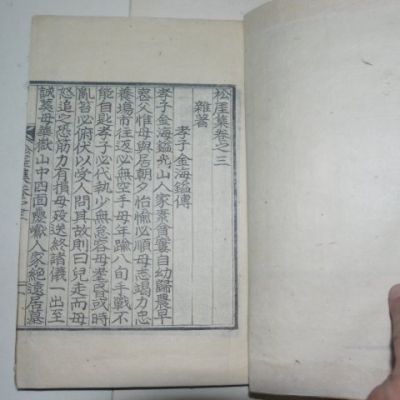 松厓集卷之三
雜著
孝子金海鎰傳
孝子金海鎰光山人家素貧窶自幼歸農早
喪父惟母與居朝夕怡愉必順母志竭力忠
養塲市往返必無空手母年踰八旬手戰不
能自匙孝子必代執少無怠容母耄昏或時
亂笞必俯伏以受人問其故則曰兒走而母
怒追之恐筋力有損母歿送終諸儀一出至
誠葬母華嶽山中四面人家絕遠居墓
松厓集卷之三